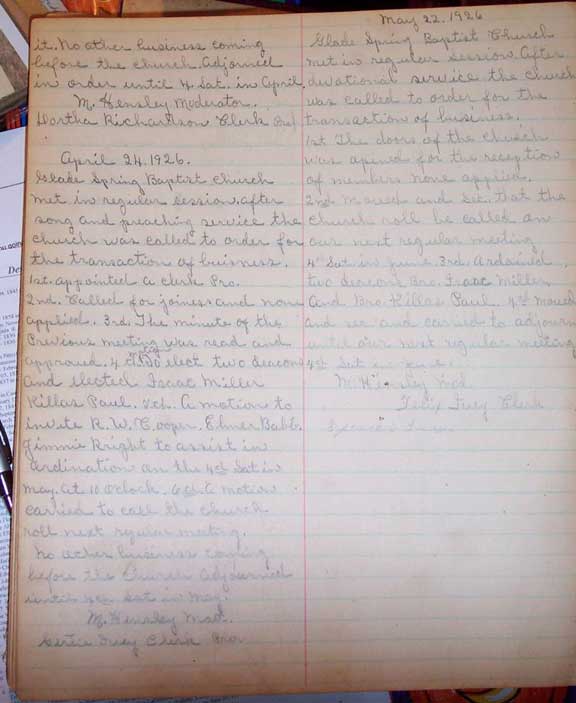 it. No other business coming
before the church. Adjorned
in order until 4 Sat. in April.
M. Hensley Moderator.
Richardson Clerk
April 24. 1926.
Glade Spring Baptist Church
met in regular session. after
song and preaching service the
church was called to order for
the transaction of buisness.
1st. appointed a clerk Pro.
2nd. Called for joiners and none
applied. 3rd. The minute of the
Previous meeting was read and
approud. 4 to elect two deacons
and elected Isaac Miller
Killas Paul. 5th. A motion to
invite R. W. Cooper. Elmer Babb.
Jimmie Knight to assist in
ardination on the 4th Sat in
may. At 10 Oclock. 6th. A motion
carried to call the church
roll next regular meeting.
No other business coming
before the Church Adjourned
until 4th Sat in May.
M. Hensley Mod.
Frey Clerk Pro
May 22. 1926
Glade Spring Baptist Church
met in regular session. After
devotional service the church
was called to order for the
transaction of business.
1st The doors of the church
was opened for the reception
of members none applied.
2nd Moved and sec. that the
church roll be called an
our next regular meeting
4th Sat in June. 3rd. Ardained
two deacons Bro. Isaac Miller
And Bro. Killas Paul. 4th moved
and sec and carried to adjourn
until our next regular meeting
4th Sat in June.
M. Hensley Mod
Felix Frey Clerk